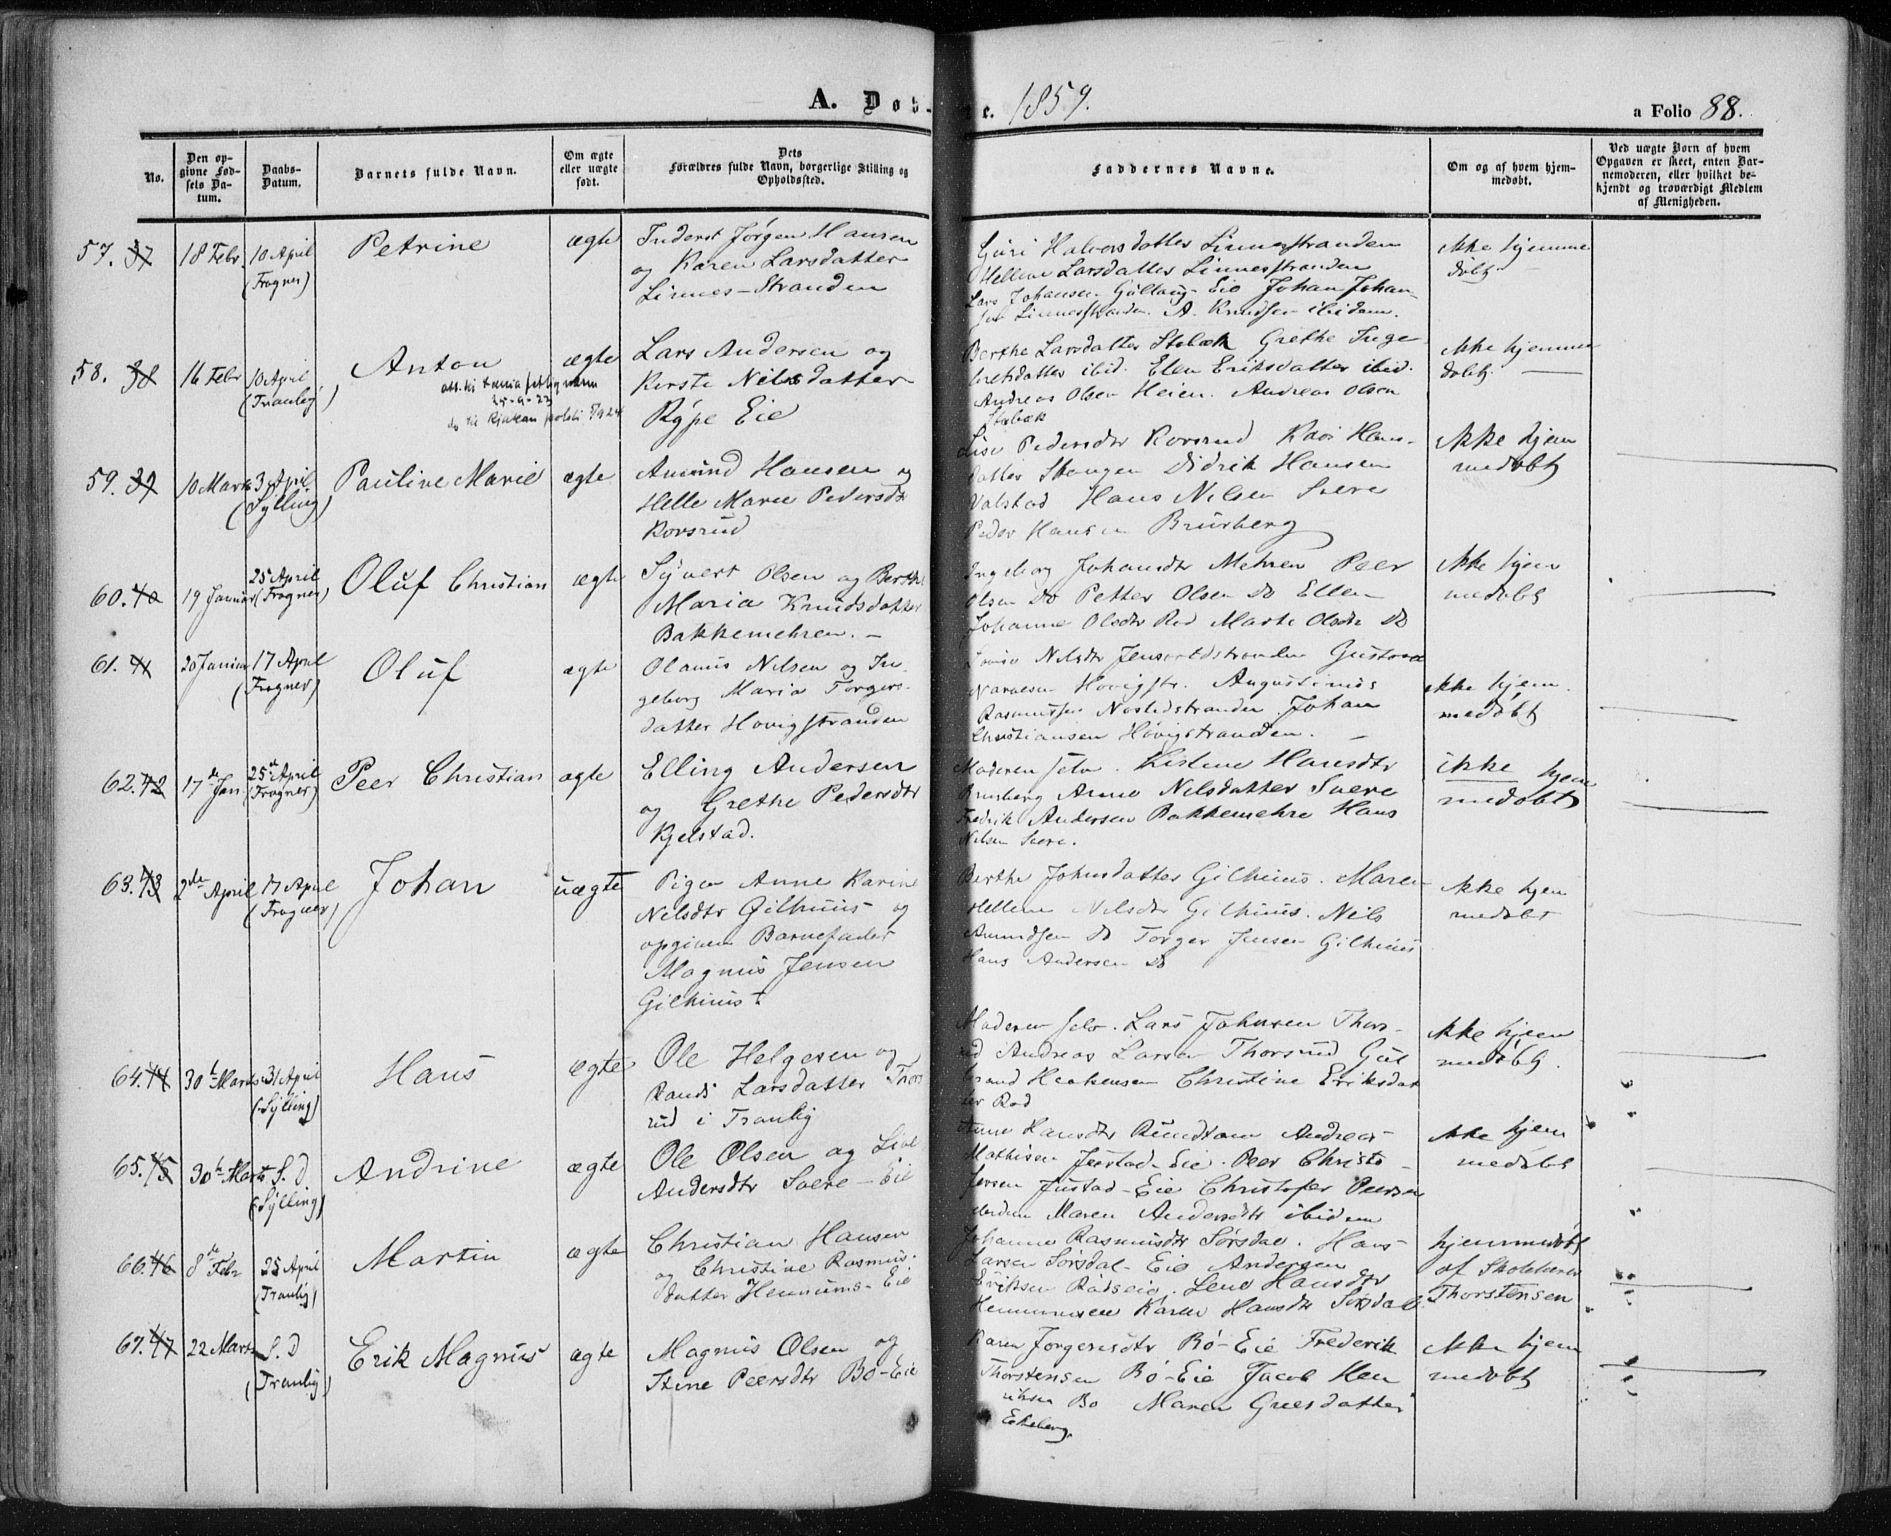 A. Døb- e. 1859. a Folio 88.
No.
Den opgivne Fødsels Datum.
Daabs-Datum.
Barnets fulde Navn.
Om ægte eller uægte født.
Dets Forældres fulde Navn, borgerlige Stilling og Opholdssted.
Faddernes Navne.
Om og af hvem hjemmedøbt.
Ved uægte Børn af hvem Opgaven er skeet, enten Barnemoderen, eller hvilket bekjendt og troværdigt Medlem af Menigheden.
57. 37 18 Febr. 10 April (Frogner) Petrine ægte
Inderst Jørgen Hansen
og Karen Larsdatter
Linnes-Stranden
Guri Halvorsdatter Linnesstranden
Hellene Larsdatter Linnesstranden
Lars Johansen Gullaug-Eie Johan Johan-
sen Linnesstranden. A. Knudsen ibidem.
ikke hjemme
døbt
58. 38 16 Febr 10 April (Tranby) Anton ægte
Lars Andersen og
Kirsti Nilsdatter
Rype Eie
Berthe Larsdatter Stabæk Grethe Inge
bretsdatter ibid. Elen Eriksdatter ibid.
Andreas Olsen Heien. Andreas Olsen
Stabæk
ikke hjemme
døbt.
59. 39 10 Marts 3 April (Sylling) Pauline Marie ægte
Amund Hansen og
Helle Marie Pedersdtr
Korsrud
Lise Pedersdtr Korsrud Kari Hans-
datter Skougen Didrik Hansen
Valstad Hans Nilsen Svere
Peder Hansen Brurberg
ikke hjem
medøbt
60. 40 19 Januar 25 April (Frogner) Oluf Christian ægte
Syvert Olsen og Berthe
Maria Knudsdatter
Bakkemehren. –
Ingeborg Johansdtr Mehren Peer
Olsen Do Petter Olsen Do Ellen
Johanne Olsdtr Rød Marte Olsdtr Do
ikke hjem
medøbt
61. 41 20 Januar 17 April (Frogner) Oluf ægte
Olaus Nilsen og In-
geborg Maria Torgers-
datter Hovigstranden
Nilsdtr Gustava
Hovigstr. Augustinus
Rasmussen Johan
Christiansen Høvigstranden. –
ikke hjem
medøbt
62. 42 17de Jan 25de April (Frogner) Peer Christian ægte
Elling Andersen
og Grethe Pedersdtr
Kjelstad.
Moderen selv. Hansdtr
Brurberg Anne Nilsdatter Svere
Fredrik Andersen Bakkemehre Hans
Nilsen Svere.
ikke hjem
medøbt
63. 43 2de April 17 April (Frogner) Johan uægte
Pigen Anne Karine
Nilsdtr Gilhuus og
opgiven Barnefader
Magnus Jensen
Gilhuus
Berthe Johnsdatter Gilhuus. Maren
Hellene Nilsdtr Gilhuus. Nils
Amundsen Do Torger Jensen Gilhuus
Hans Andersen Do
ikke hjem
medøbt
64. 44 30t Marts 31 April (Sylling) Hans ægte
Ole Helgesen og
Randi Larsdatter Thors
rud i Tranby
Moderen selv. Lars Johnsen Thors-
rud Andreas Larsen Thorsrud Gul
brand Christine Eriksdat
ter Rød
ikke hjem
medøbt.
65. 45 30te Marts S. D (Sylling) Andrine ægte
Ole Olsen og Live
Andersdtr Svere-Eie
Anne Hansdtr Andreas
Mathisen Justad-Eie. Peer Christo-
fersen Justad-Eie Christofer Peersen
ibidem Maren Andersdtr ibidem
ikke hjem
medøbt
66. 46 8de Febr 25 April (Tranby) Martin ægte
Christian Hansen
og Christine Rasmus-
datter Hennums-Eie
Johanne Rasmusdtr Sørsdal. Hans
Larsen Sørsdal-Eie Andersen
Eriksen Rødseie. Lene Hansdtr
Karen Hansdtr Sørsdal
hjemmedøbt
af Skolelærer
Thorstensen
67. 47 22 Marts S. D (Tranby) Erik Magnus ægte
Magnus Olsen og
Stine Peersdtr Bø-Eie
Karen Jørgensdtr Bø-Eie Frederik
Thorstensen Bø-Eie Jacob Hen
riksen Bø Maren
Eikeberg.
ikke hjem
medøbt